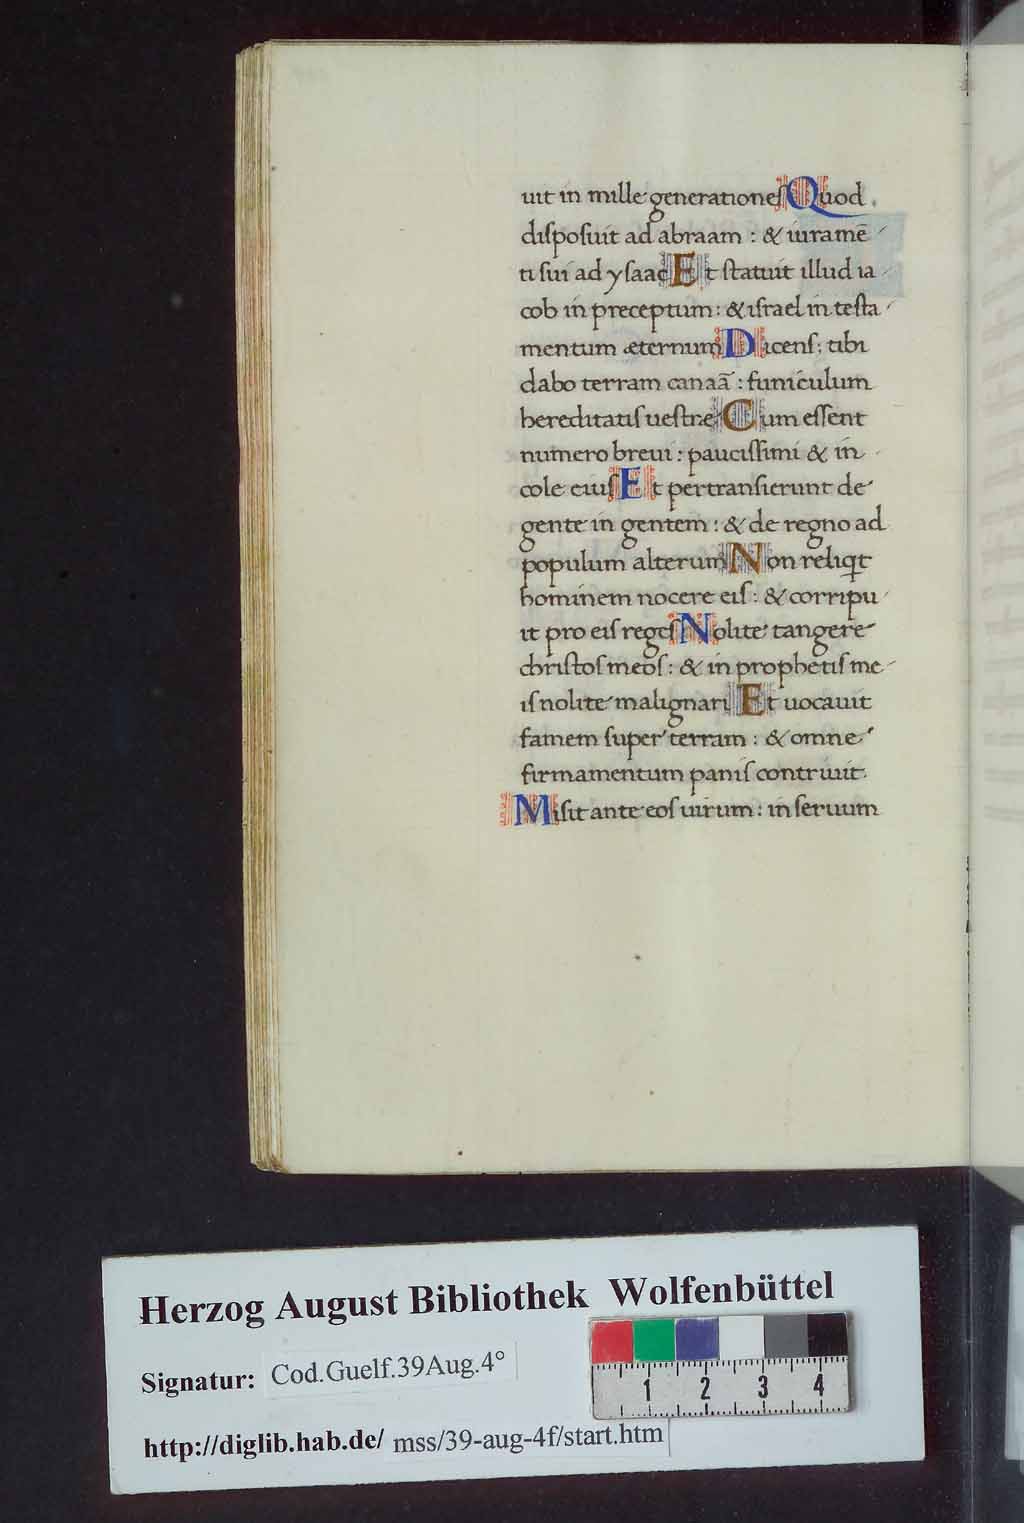 uit in mille generationes Quod
disposuit ad abraam : & iuramē
ti sui ad ysaac Et statuit illud ia
cob in preceptum : & israel in testa
mentum æternum Dicens : tibi
dabo terram canaā : funiculum
hereditatis uestræ Cum essent
numero breui : paucissimi & in
cole eius Et pertransierunt de
gente in gentem : & de regno ad
populum alterum Non reliqt
hominem nocere eis : & corripu
it pro eis reges Nolite tangere
christos meos : & in prophetis me
is nolite malignari Et uocauit
famem super terram : & omne
firmamentum panis contriuit.
Misit ante eos uirum : in seruum
Herzog August Bibliothek Wolfenbüttel
Signatur: Cod.Guelf.39Aug.4°
http://diglib.hab.de/ mss/39-aug-4f/start.htm
1 2 3 4